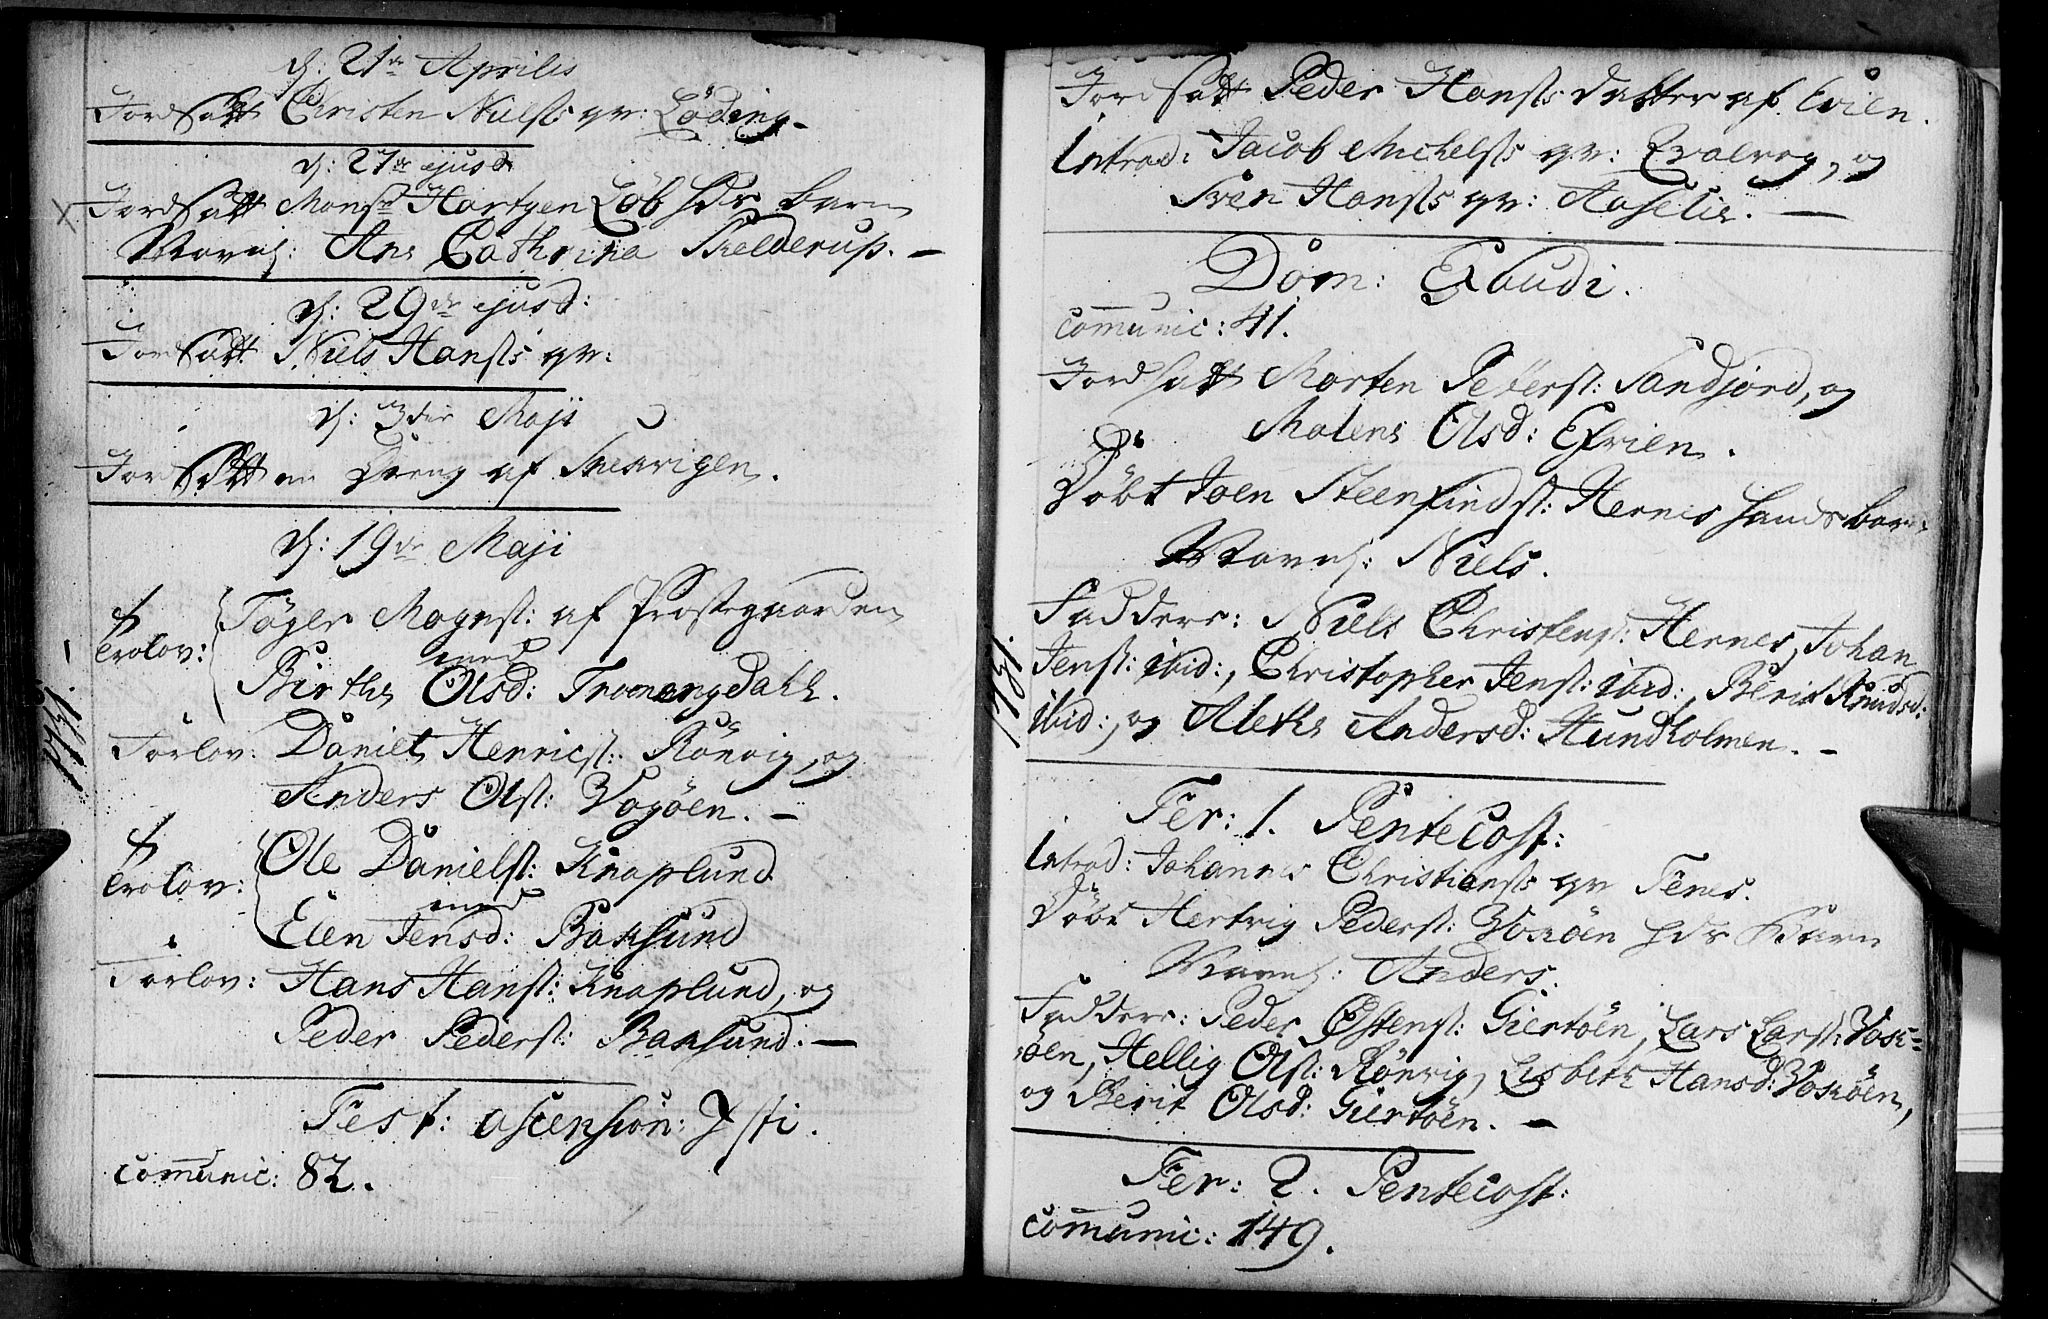 d: 21de Aprilis
Jordsatt Christen Nielss qv: Löding.
d: 27de ejusd
Jordsatt Monsr Hartgen Löb hds barn
Navnl: Ane Cathrina Skelderup. –
d: 29de ejusd:
Jordsatt Niels Hanss qv:
d: 3die Maji
Jordsatt en Dreng af
d: 19de Maji
Töger Mognss: af Prostegaarden
Trolov: med
Birthe Olsd: Tromengdahl.
Forlov: Daniel Henricss: Rönvig, og
Anders Olss: Vogöen. –
Ole Danielss: Knoplund
Trolov: med
Elen Jensd: Boxsund
Forlov: Hans Hanss: Knoplund, og
Peder Pederss: Boxsund. –
1751.
Fest: ascension: Xsti.
comunic: 82.
Jordsatt Peder Hanss datter af Evien.
Introd: Jacob Michelss qv: Qvalvog, og
Sven Hanss qv: Aaselie. –
Dom: Exaudi.
comunic: 41.
Jordsatt Morten Peterss: Sandjord, og
Malene Olsd: Evien.
Döbt Joen Steenfindss: Hernes hands barn
Navnl: Niels.
Faddere: Niels Christenss: Hernes, Johan
Jenss: ibid:, Christopher Jenss: ibid:, Berit Knudsd:
ibid:, og Alethe Andersd: Hundholmen. –
1751.
Fer: 1. Pentecost:
Introd: Johannes Christianss qv Fenes.
Döbt Hertvig Pederss: Voxöen hds Barn
Navnl: Anders.
Faddere: Peder Estenss: Giertöen, Lars Larss: Vox=
öen, Hellig Olss: Rönvig, Lisbeth Hansd: Voxöen,
og Berit Olsd: Giertöen. –
Fer: 2. Pentecost:
comunic: 149.